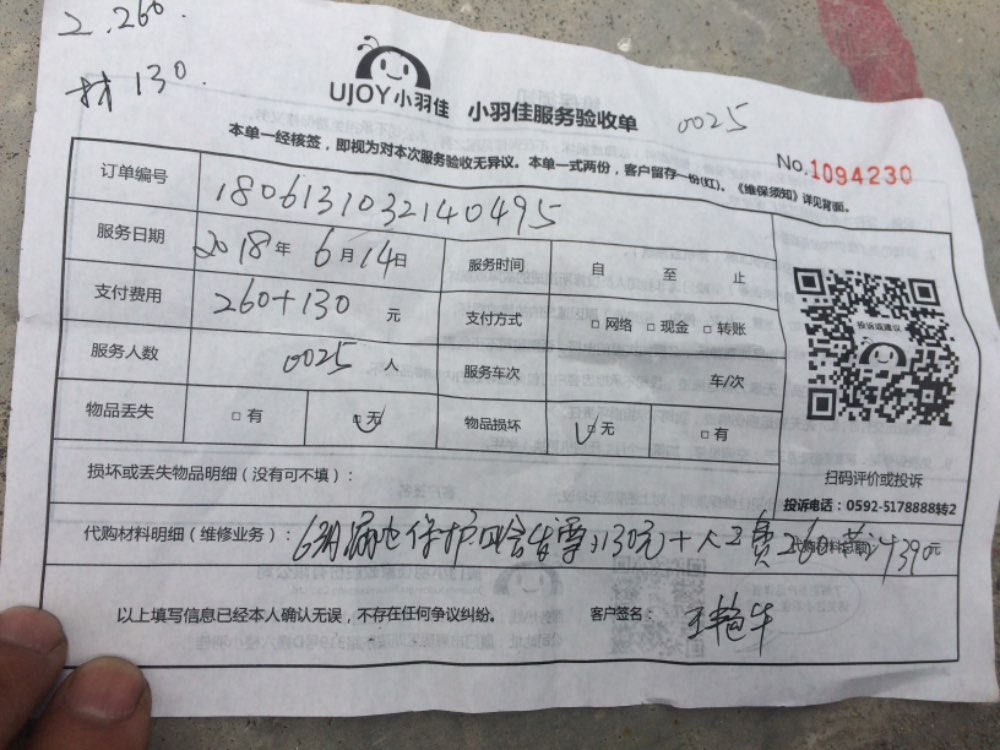 2.260.
材130.
UJOY小羽佳 小羽佳服务验收单
0025
本单一经核签，即视为对本次服务验收无异议。本单一式两份，客户留存一份(红)。《维保须知》详见背面。
No.1094230
订单编号 1806131032140495
服务日期 2018年6月14日 服务时间 自 至 止
支付费用 260+130 元 支付方式 □网络 □现金 □转账
投诉或建议
服务人数 0025 人 服务车次 车/次
物品丢失 □有 □无 物品损坏 □无 □有
损坏或丢失物品明细（没有可不填）：
扫码评价或投诉
投诉电话：0592-5178888转2
代购材料明细（维修业务）： 漏电保护 130元+人工费260 390元
以上填写信息已经本人确认无误，不存在任何争议纠纷。 客户签名：